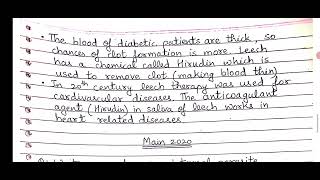 • The blood of diabetic patients are thick, so
chances of clot formation is more. Leech
has a chemical called Hirudin which is
used to remove clot (making blood thin)
• In 20th century leech therapy was used for
cardivascular diseases. The anticoagulant
agent (Hirudin) in saliva of leech works in
heart related diseases.
Main 2020